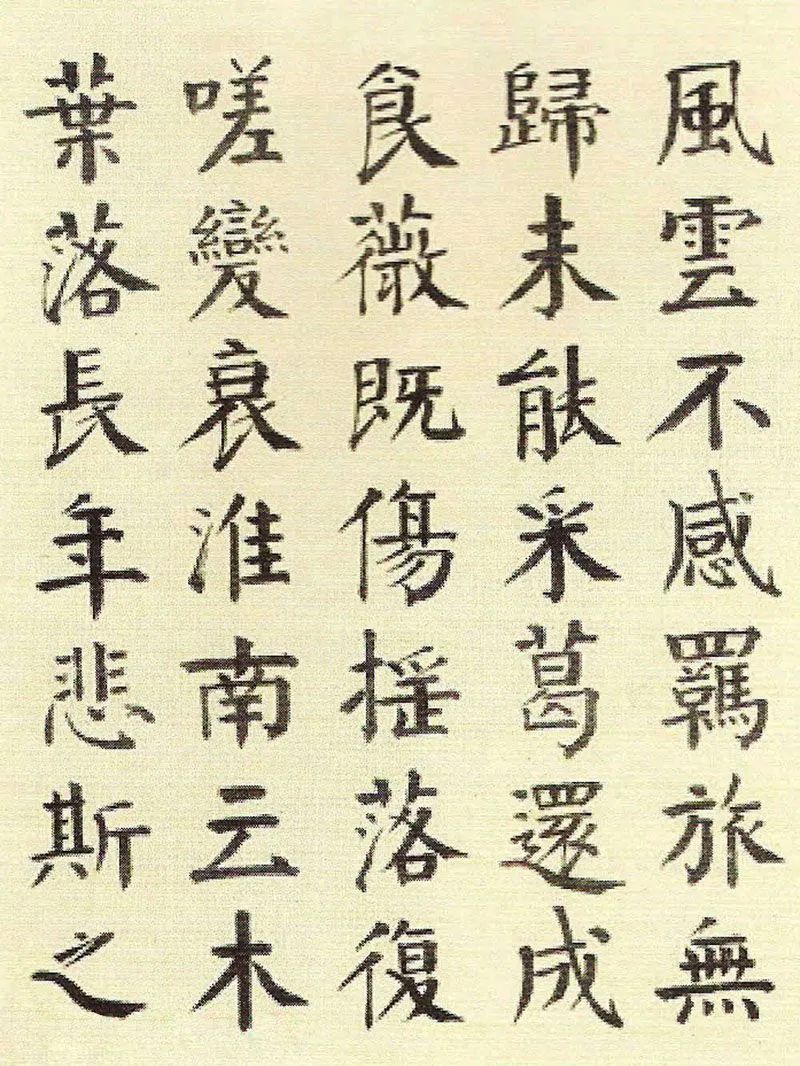 風雲不感羈旅無
歸未能采葛還成
食薇既傷搖落復
嗟變衰淮南云木
葉落長年悲斯之